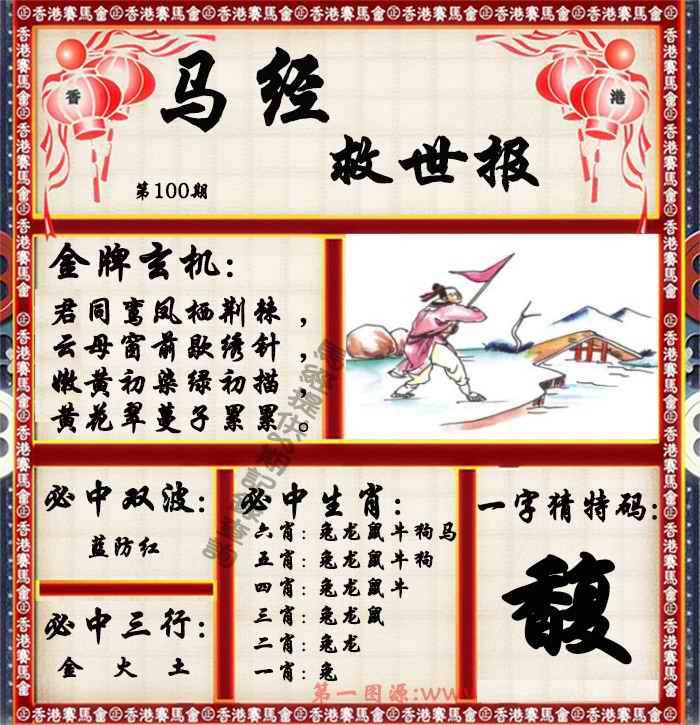 香港賽馬會
香
港
马经
救世报
第100期
金牌玄机：
君同鸾凤栖荆棘，
云母窗前歇绣针，
嫩黄初染绿初描，
黄花翠蔓子累累。
必中双波：
蓝防红
必中三行：
金 火 土
必中生肖：
六肖：兔龙鼠牛狗马
五肖：兔龙鼠牛狗
四肖：兔龙鼠牛
三肖：兔龙鼠
二肖：兔龙
一肖：兔
一字猜特码：
馥
第一图源:www